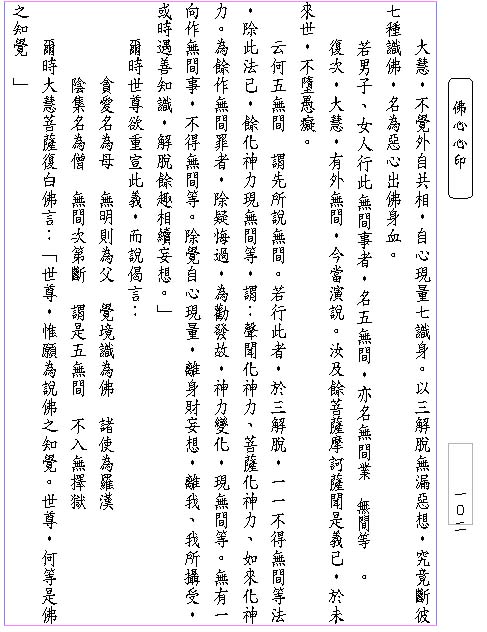 大慧，不覺外自共相，自心現量七識身。以三解脫無漏惡想，究竟斷彼
七種識佛，名為惡心出佛身血。
若男子、女人行此無間事者，名五無間，亦名無間業　無間等　。
復次，大慧，有外無間，今當演說。汝及餘菩薩摩訶薩聞是義已，於未
來世，不墮愚癡。
云何五無間　謂先所說無間。若行此者，於三解脫，一一不得無間等法
，除此法已，餘化神力現無間等，謂：聲聞化神力、菩薩化神力、如來化神
力。為餘作無間罪者，除疑悔過，為勸發故，神力變化，現無間等。無有一
向作無間事，不得無間等。除覺自心現量，離身財妄想，離我、我所攝受，
或時遇善知識，解脫餘趣相續妄想。」
爾時世尊欲重宣此義，而說偈言：
貪愛名為母　無明則為父　覺境識為佛　諸使為羅漢
陰集名為僧　無間次第斷　謂是五無間　不入無擇獄
爾時大慧菩薩復白佛言：「世尊，惟願為說佛之知覺。世尊，何等是佛
之知覺　」
佛心心印
一０二